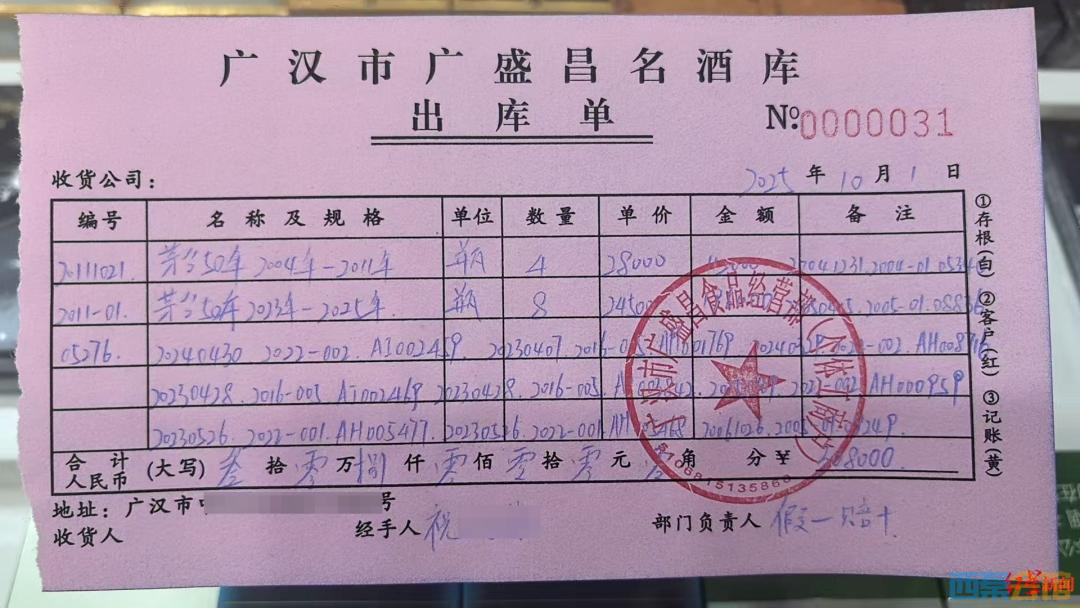 广汉市广盛昌名酒库
出库单
№:0000031
收货公司:
2025年10月1日
编号 名称及规格 单位 数量 单价 金额 备注
20111021. 茅台50年 2004年-2011年 瓶 4 28000 20041231.2004-01.0534
2011-01. 茅台50年 2023年-2025年 瓶 8 24500 2005-01.08836
05276. 20240430 2022-002. AI002469. 20230407. 2016-005 2022-002. AH008976
20230428. 2016-005 AI002469 20230428. 2016-005. 2022-002 AH000959
20230526. 2022-001. AH005477. 20230526. 2022-001 20061026.
合计人民币 (大写) 叁拾零万捌仟零佰零拾零元零角 分¥308000
①存根(白) ②客户(红) ③记账(黄)
广汉市广盛昌食品经营部(个体工商户)
5106815135868
地址:广汉市 号
收货人 经手人 祝 部门负责人 假一赔十
红星新闻